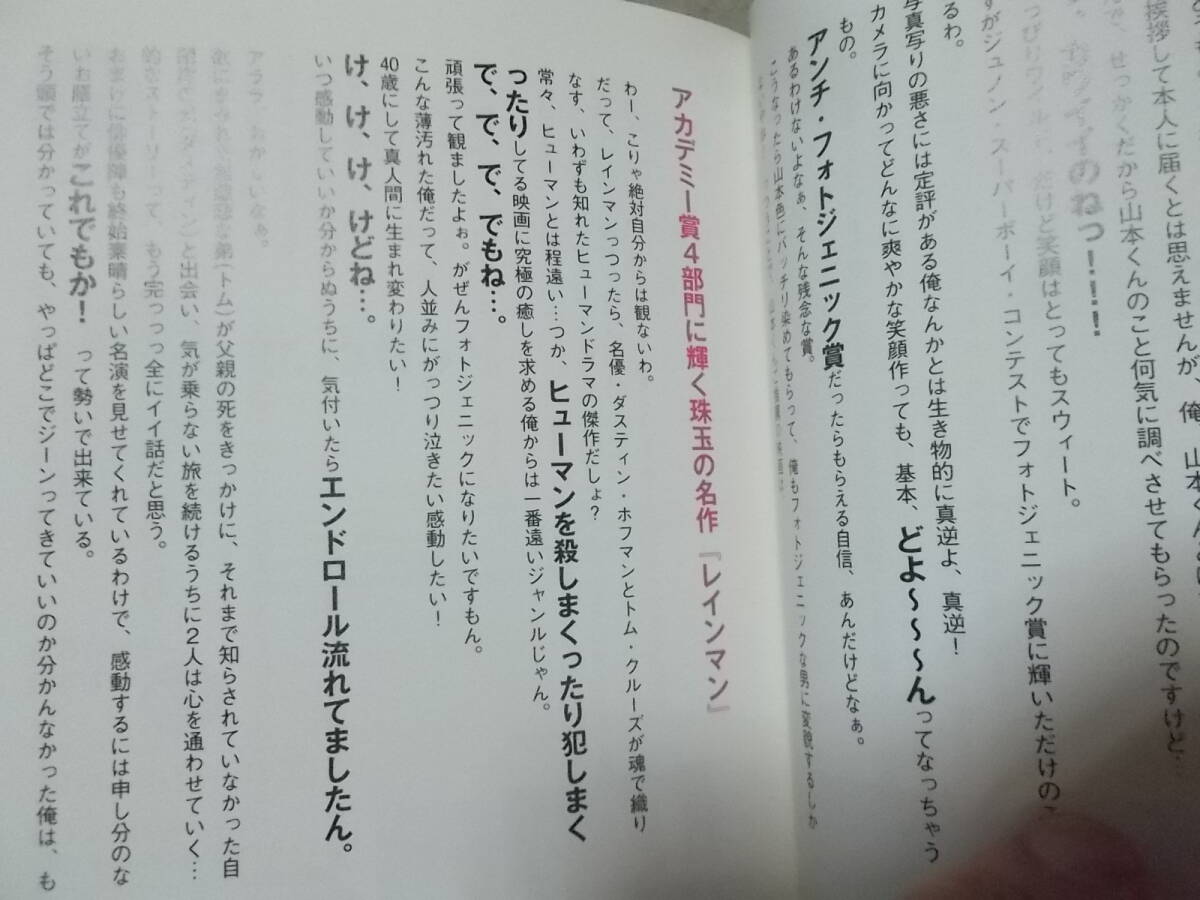 挨拶して本人に届くとは思えませんが、俺、山本くん
で、せっかくだから山本くんのこと何気に調べさせてもらったのですけど…
のねっ!!!
けど笑顔はとってもスウィート。
すがジュノン・スーパーボーイ・コンテストでフォトジェニック賞に輝いただけのこ
るわ。
写真写りの悪さには定評がある俺なんかとは生き物的に真逆よ、真逆!
カメラに向かってどんなに爽やかな笑顔作っても、基本、どよ～～～んってなっちゃう
もの。
アンチ・フォトジェニック賞だったらもらえる自信、あんだけどなぁ。
あるわけないよなぁ、そんな残念な賞。
こうなったら山本色にバッチリ染めてもらって、俺もフォトジェニックな男に変貌するしか
アカデミー賞4部門に輝く珠玉の名作『レインマン』
わー、こりゃ絶対自分からは観ないわ。
だって、レインマンっつったら、名優・ダスティン・ホフマンとトム・クルーズが魂で織り
なす、いわずも知れたヒューマンドラマの傑作だしょ?
常々、ヒューマンとは程遠い…つか、ヒューマンを殺しまくったり犯しまく
ったりしてる映画に究極の癒しを求める俺からは一番遠いジャンルじゃん。
で、で、で、でもね…。
頑張って観ましたよぉ。がぜんフォトジェニックになりたいですもん。
こんな薄汚れた俺だって、人並みにがっつり泣きたい感動したい!
40歳にして真人間に生まれ変わりたい!
け、け、け、けどね…。
いつ感動していいか分からぬうちに、気付いたらエンドロール流れてましたん。
アララ、おかしいなぁ。
な弟(トム)が父親の死をきっかけに、それまで知らされていなかった自
と出会い、気が乗らない旅を続けるうちに2人は心を通わせていく…
的なストーリーって、もう完っっっ全にイイ話だと思う。
おまけに俳優陣も終始素晴らしい名演を見せてくれているわけで、感動するには申し分のな
いお膳立てがこれでもか! って勢いで出来ている。
そう頭では分かっていても、やっぱどこでジーンってきていいのか分かんなかった俺は、も